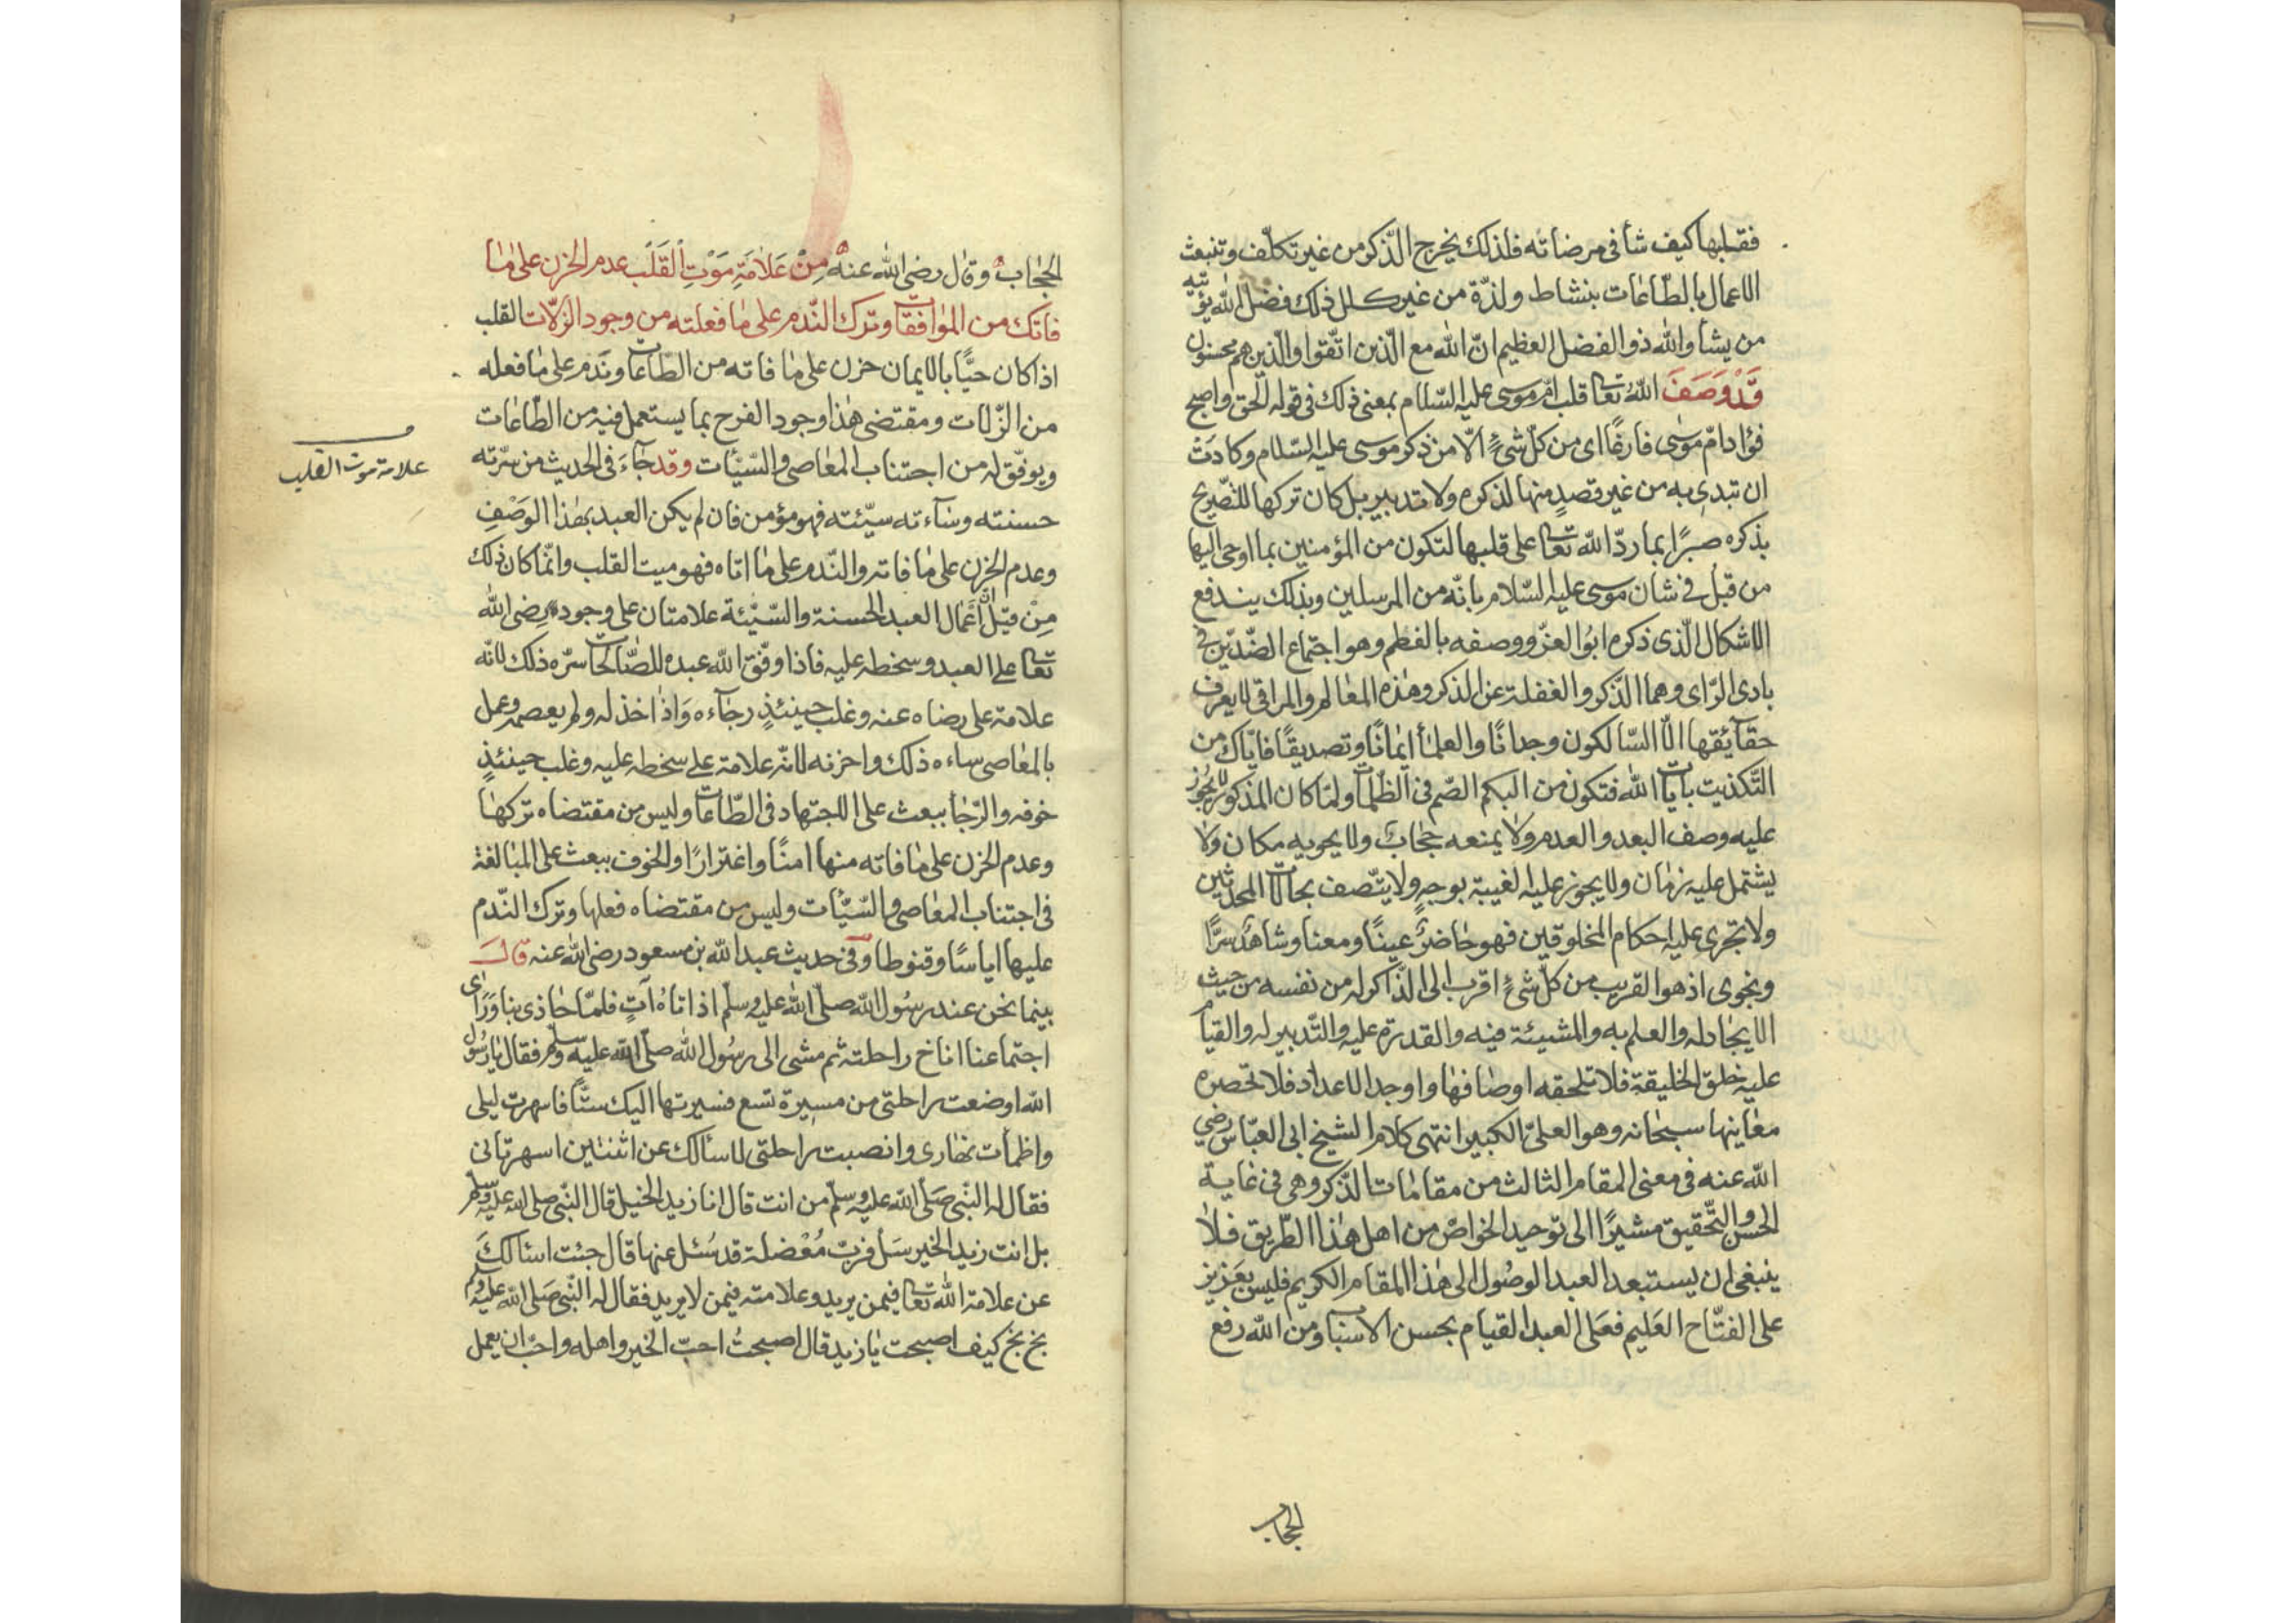 فقلبها كيف شأ فى مرضاته فلذلك يخرج الذّكر من غير تكلّف وتنبعث
الاعمال بالطّاعات بنشاط ولذّة من غير كلل ذلك فضل الله يؤتيه
من يشأ والله ذو الفضل العظيم انّ الله مع الّذين اتّقوا والّذين هم محسنون
قَدْ وَصَفَ اللّٰهُ تعا قلب امّ موسى عليه السّلام بمعنى ذلك فى قوله الحق واصبح
فؤاد امّ موسى فارغًا اى من كلّ شئٍ الّا من ذكر موسى عليه السّلام وكادَتْ
ان تبدى به من غير قصدٍ منها لذكره ولا تدبير بل كان تركها للتّصريح
بذكره صبرًا بما ردّ الله تعا على قلبها لتكون من المؤمنين بما اوحى اليها
من قبْل فى شان موسى عليه السّلام بانّه من المرسلين وبذلك يندفع
الاشكال الّذى ذكره ابُو العزّ ووصفه بالفطم وهو اجتماع الضّدّين فى
بادى الرّاى وهما الذّكر والغفلة عن الذكر وهذه المعالم والمراقى لا يعرف
حقآئقها الّا السّالكون وجدانًا والعلمأ ايمانًا وتصديقًا فايّاك من
التّكذيب بايات الله فتكون من البكم الصّم فى الظّلمات ولمّا كان المذكور لا يجُوز
عليه وصف البعد والعدم ولا يمنعه حجابٌ ولا يحويه مكان ولا
يشتمل عليه زمان ولا يجوز عليه الغيبة بوجهٍ ولا يتّصف بحالات المحدثين
ولا تجرى عليه احكام المخلوقين فهو حاضرٌ عينًا ومعنا وشاهدٌ سرًّا
ونجوى اذ هو القريب من كلّ شئٍ اقرب الى الذّاكر له من نفسه من حيث
الايجاد له والعلم به والمشيئة فيه والقدرة عليه والتّدبير له والقيام
عليه خلق الخليقة فلا تلحقه اوصافها واوجد الاعداد فلا تحصره
معاينها سبحانه وهو العلىّ الكبير انتهى كلام الشيخ ابى العبّاس رضي
الله عنه فى معنى المقام الثالث من مقامات الذّكر وهى فى غاية
الحسن والتّحقيق مشيرًا الى توحيد الخواصّ من اهل هذا الطّريق فلا
ينبغى ان يستبعد العبد الوصُول الى هذا المقام الكريم فليس بعَزيز
على الفتّاح العَليم فعَلى العبد القيام بحسن الاسباب ومن الله رفع
الحجاب
الحجاب وقال رضى الله عنه مِنْ عَلَامَةِ مَوْتِ القَلْب عدم الحزن على ما
فاتك من الموافقات وترك النّدم على ما فعلته من وجود الزّلّات القلب
اذا كان حيًّا بالايمان حزن على ما فاته من الطّاعات وندم على ما فعله
من الزّلات ومقتضى هذا وجود الفرح بما يستعمل فيه من الطّاعات
ويوفّق له من اجتناب المعاصى والسّيّئات وقد جآءَ فى الحديث من سرّته
علامة موت القلب
حسنته وسآءته سيّئته فهو مؤمن فان لم يكن العبد بهذا الوَصْفِ
وعدم الحزن على ما فاته والنّدم على ما اتاه فهو ميت القلب وانّما كان ذلك
مِنْ قبَل أنّ أعمال العبد الحسنة والسّيّئة علامتان على وجود رضى الله
تعا على العبد وسخطه عليه فاذا وفّق الله عبده للصّالحات سرّه ذلك لانّه
علامة على رضاه عنه وغلب حينئذٍ رجآءه وَاذا خذله ولم يعصمه وعمل
بالمعاصى ساءه ذلك واحزنه لانّه علامة على سخطه عليه وغلب حينئذٍ
خوفه والرّجأ يبعث على الاجتهاد فى الطّاعات وليس من مقتضاه تركها
وعدم الحزن على ما فاته منها امنًا واغترارًا والخوف يبعث على المبالغة
فى اجتناب المعاصى والسّيّئات وليس من مقتضاه فعلها وترك النّدم
عليها اياسًا وقنوطا وفى حديث عبد الله بن مسعود رضى الله عنه قالَ
بينما نحن عند رسُول الله صلّى الله عليه وسلّم اذ اتاهُ اٰتٍ فلمّا حاذى بنا وَرَاى
اجتماعنا اناخ راحلته ثم مشى الى رسُول الله صلّى الله عليه وسلّم فقال يا رسُول
الله اوضعت راحلتى من مسِيرة تسع فسيرتها اليك ستًّا فاسهرت ليلى
واظمأت نهارى وانصبت راحلتى لاسألك عن اثنتين اسهرتانى
فقال له النّبى صَلّى الله عليه وسلّم من انت قال انا زيد الخيل قال النّبى صلى الله عليه وسلم
بل انت زيد الخير سَل فربّ مُعْضلة قد سُئل عنها قال جئت اسئالكَ
عن علامة الله تعا فيمن يريد وعلامته فيمن لا يريد فقال له النّبى صَلى الله عليه وسلم
بخ بخ كيف اصبحت يا زيد قال اصبحتُ احبّ الخير واهله واحبّ ان يعمل